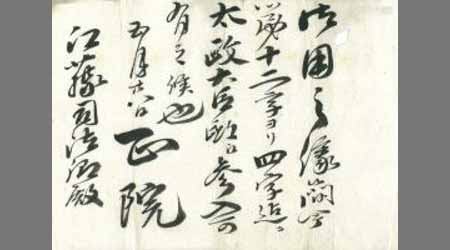 御用之儀候間今
第十二字ヨリ四字迄ニ
太政大臣邸ニ参入可
有之候也
五月廿八日 正院
江藤司法卿殿